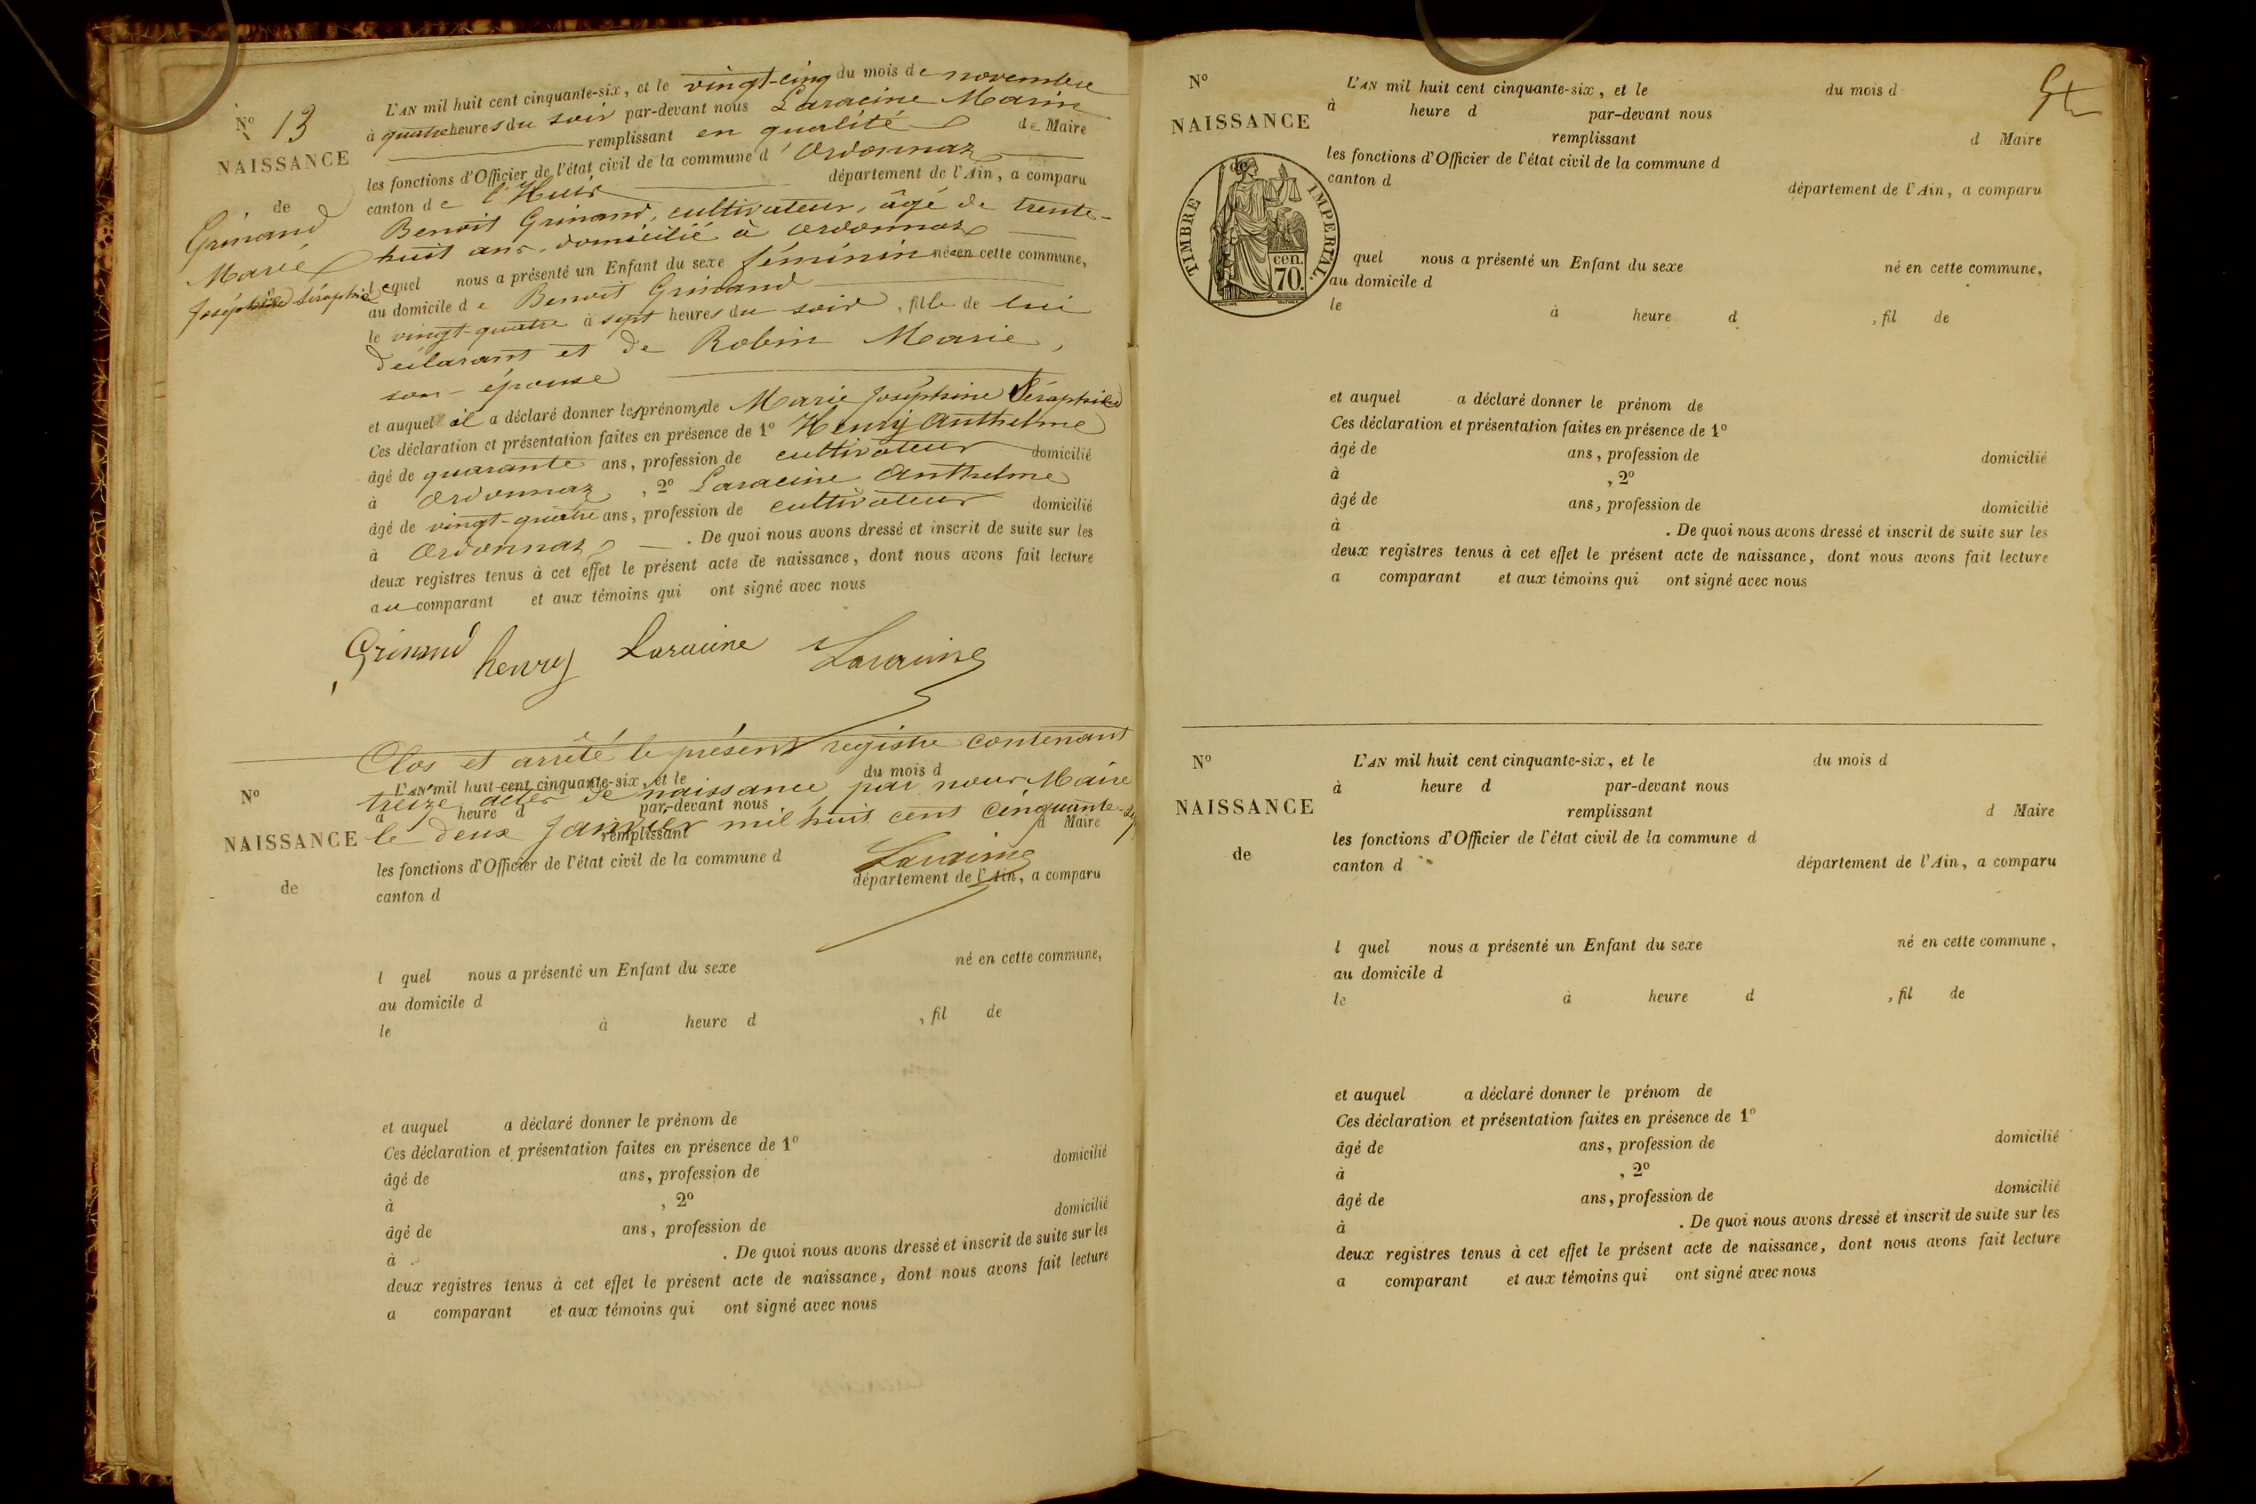 N° 13
NAISSANCE
de
Grinand
Marie
Joséphine Séraphie
L'AN mil huit cent cinquante-six, et le vingt-cinq du mois de novembre
à quatre heures du soir par-devant nous Laracine Marin
remplissant en qualité de Maire
les fonctions d'Officier de l'état civil de la commune d'Ordonnaz
canton de l'Huis département de l'Ain, a comparu
Benoit Grinand, cultivateur, âgé de trente-
huit ans, domicilié à Ordonnaz
lequel nous a présenté un Enfant du sexe féminin né en cette commune,
au domicile de Benoit Grinand
le vingt-quatre à sept heures du soir, fille de lui
déclarant et de Robin Marie,
son épouse
et auquel il a déclaré donner les prénoms de Marie Joséphine Séraphie
Ces déclaration et présentation faites en présence de 1° Henry Anthelme
âgé de quarante ans, profession de cultivateur domicilié
à Ordonnaz, 2° Laracine Anthelme
âgé de vingt-quatre ans, profession de cultivateur domicilié
à Ordonnaz. De quoi nous avons dressé et inscrit de suite sur les
deux registres tenus à cet effet le présent acte de naissance, dont nous avons fait lecture
au comparant et aux témoins qui ont signé avec nous
Grinand henry Laracine Laracine
Clos et arrêté le présent registre contenant
treize actes de naissance par nous Maire
le deux Janvier mil huit cent cinquante-
Laracine
N°
NAISSANCE
de
L'AN mil huit cent cinquante-six, et le du mois d
à heure d par-devant nous
remplissant d Maire
les fonctions d'Officier de l'état civil de la commune d
canton d département de l'Ain, a comparu
l quel nous a présenté un Enfant du sexe né en cette commune,
au domicile d
le à heure d , fil de
et auquel a déclaré donner le prénom de
Ces déclaration et présentation faites en présence de 1°
âgé de ans, profession de domicilié
à , 2°
âgé de ans, profession de domicilié
à . De quoi nous avons dressé et inscrit de suite sur les
deux registres tenus à cet effet le présent acte de naissance, dont nous avons fait lecture
a comparant et aux témoins qui ont signé avec nous
N°
NAISSANCE
de
TIMBRE IMPERIAL.
70 cen.
L'AN mil huit cent cinquante-six, et le du mois d
à heure d par-devant nous
remplissant d Maire
les fonctions d'Officier de l'état civil de la commune d
canton d département de l'Ain, a comparu
quel nous a présenté un Enfant du sexe né en cette commune,
au domicile d
le à heure d , fil de
et auquel a déclaré donner le prénom de
Ces déclaration et présentation faites en présence de 1°
âgé de ans, profession de domicilié
à , 2°
âgé de ans, profession de domicilié
à . De quoi nous avons dressé et inscrit de suite sur les
deux registres tenus à cet effet le présent acte de naissance, dont nous avons fait lecture
a comparant et aux témoins qui ont signé avec nous
N°
NAISSANCE
de
L'AN mil huit cent cinquante-six, et le du mois d
à heure d par-devant nous
remplissant d Maire
les fonctions d'Officier de l'état civil de la commune d
canton d département de l'Ain, a comparu
l quel nous a présenté un Enfant du sexe né en cette commune,
au domicile d
le à heure d , fil de
et auquel a déclaré donner le prénom de
Ces déclaration et présentation faites en présence de 1°
âgé de ans, profession de domicilié
à , 2°
âgé de ans, profession de domicilié
à . De quoi nous avons dressé et inscrit de suite sur les
deux registres tenus à cet effet le présent acte de naissance, dont nous avons fait lecture
a comparant et aux témoins qui ont signé avec nous